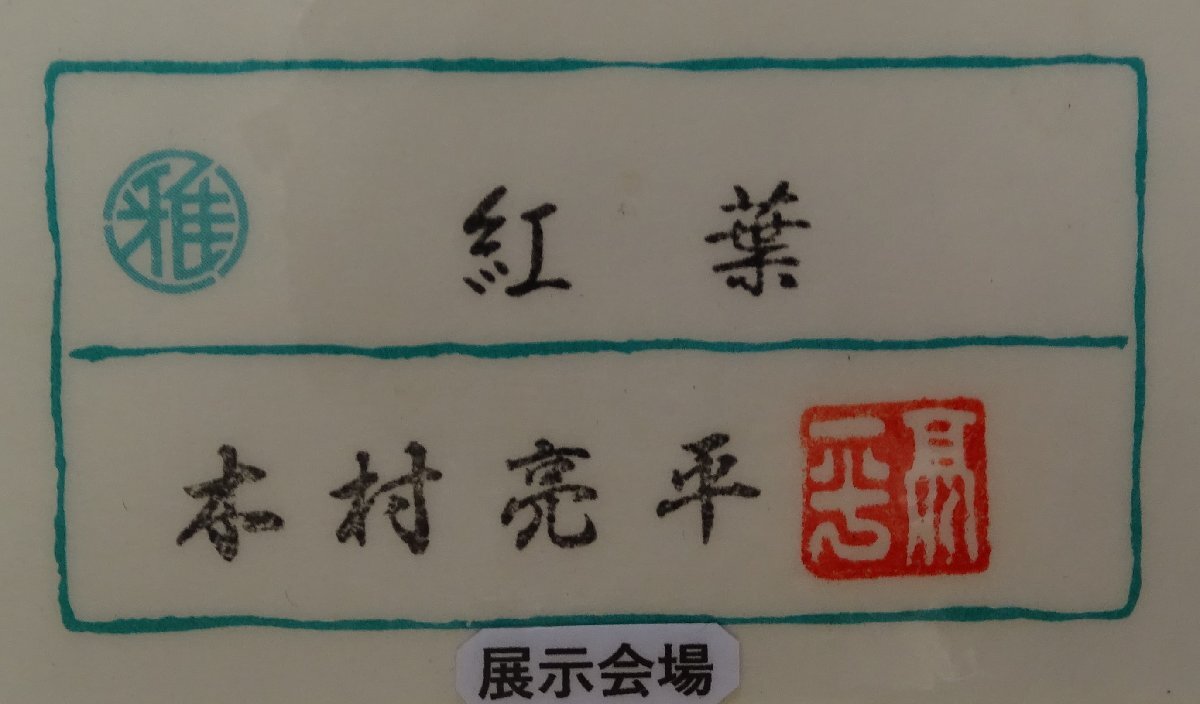 雅
紅葉
木村亮平
展示会場